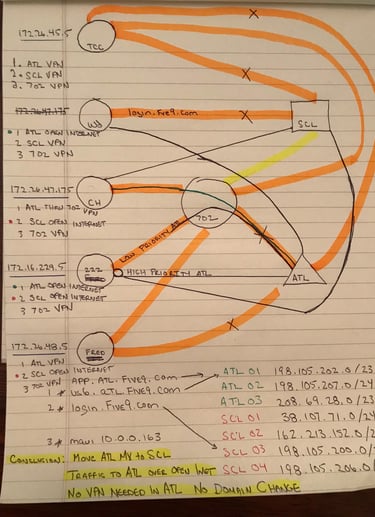 172.26.45.5
TCC
1. ATL VPN
2. SCL VPN
3. 702 VPN
172.26.47.175
login.Five9.com
SCL
1 ATL OPEN INTERNET
2 SCL VPN
3 702 VPN
172.26.47.175
CH
702
1 ATL THEN 702 VPN
2 SCL OPEN INTERNET
3 702 VPN
LOW PRIORITY ATL
172.16.229.5
222
FRED
HIGH PRIORITY ATL
ATL
1 ATL OPEN INTERNET
2 SCL OPEN INTERNET
3 702 VPN
172.26.48.5
FRED
1 ATL VPN
2 SCL OPEN INTERNET
3 702 VPN
APP.ATL.Five9.com
ATL 01 198.105.202.0/23
1# atl.Five9.com
ATL 02 198.105.207.0/24
2# login.Five9.com
ATL 03 208.69.28.0/23
SCL 01 38.107.71.0/24
3# maui 10.0.0.163
SCL 02 162.213.152.0/2
SCL 03 198.105.200.0/
SCL 04 198.105.206.0/
CONCLUSION: MOVE ATL MX TO SCL
TRAFFIC TO ATL OVER OPEN INET
NO VPN NEEDED IN ATL NO DOMAIN CHANGE